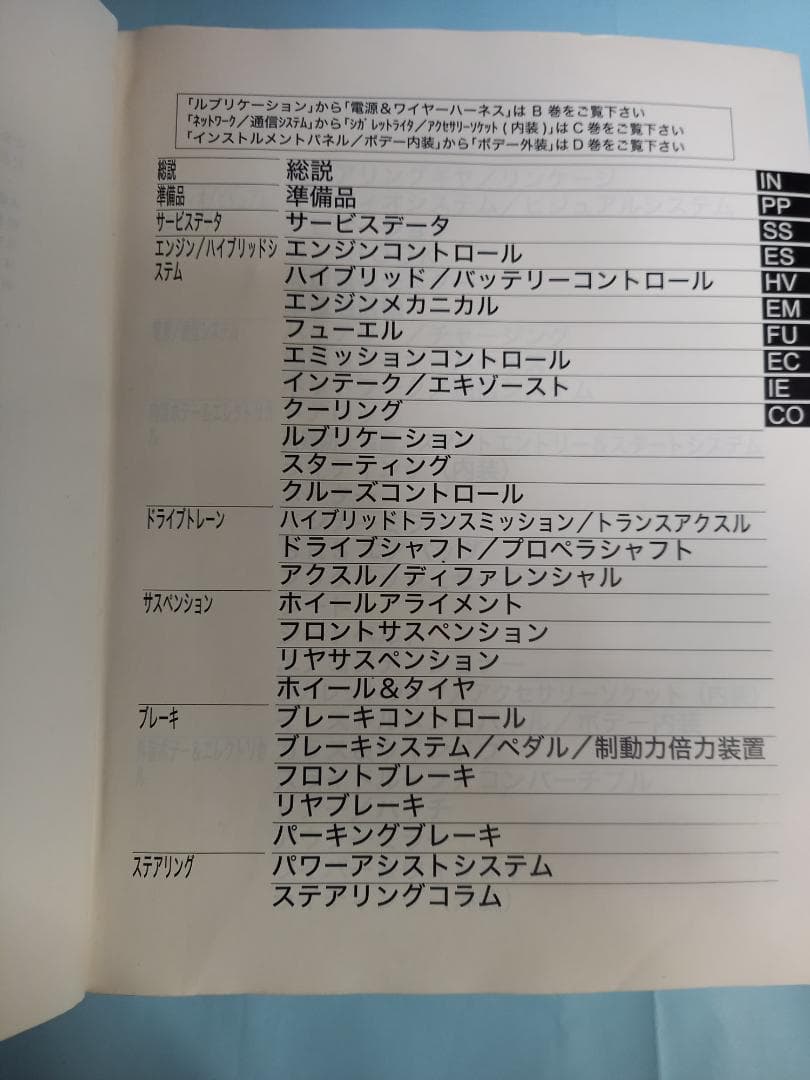 「ルブリケーション」から「電源＆ワイヤーハーネス」は B 巻をご覧下さい
「ネットワーク／通信システム」から「シガレットライタ／アクセサリーソケット(内装)」は C 巻をご覧下さい
「インストルメントパネル／ボデー内装」から「ボデー外装」は D 巻をご覧下さい
総説 総説 IN
準備品 準備品 PP
サービスデータ サービスデータ SS
エンジン／ハイブリッドシ エンジンコントロール ES
ステム ハイブリッド／バッテリーコントロール HV
エンジンメカニカル EM
フューエル FU
エミッションコントロール EC
インテーク／エキゾースト IE
クーリング CO
ルブリケーション
スターティング
クルーズコントロール
ドライブトレーン ハイブリッドトランスミッション／トランスアクスル
ドライブシャフト／プロペラシャフト
アクスル／ディファレンシャル
サスペンション ホイールアライメント
フロントサスペンション
リヤサスペンション
ホイール＆タイヤ
ブレーキ ブレーキコントロール
ブレーキシステム／ペダル／制動力倍力装置
フロントブレーキ
リヤブレーキ
パーキングブレーキ
ステアリング パワーアシストシステム
ステアリングコラム